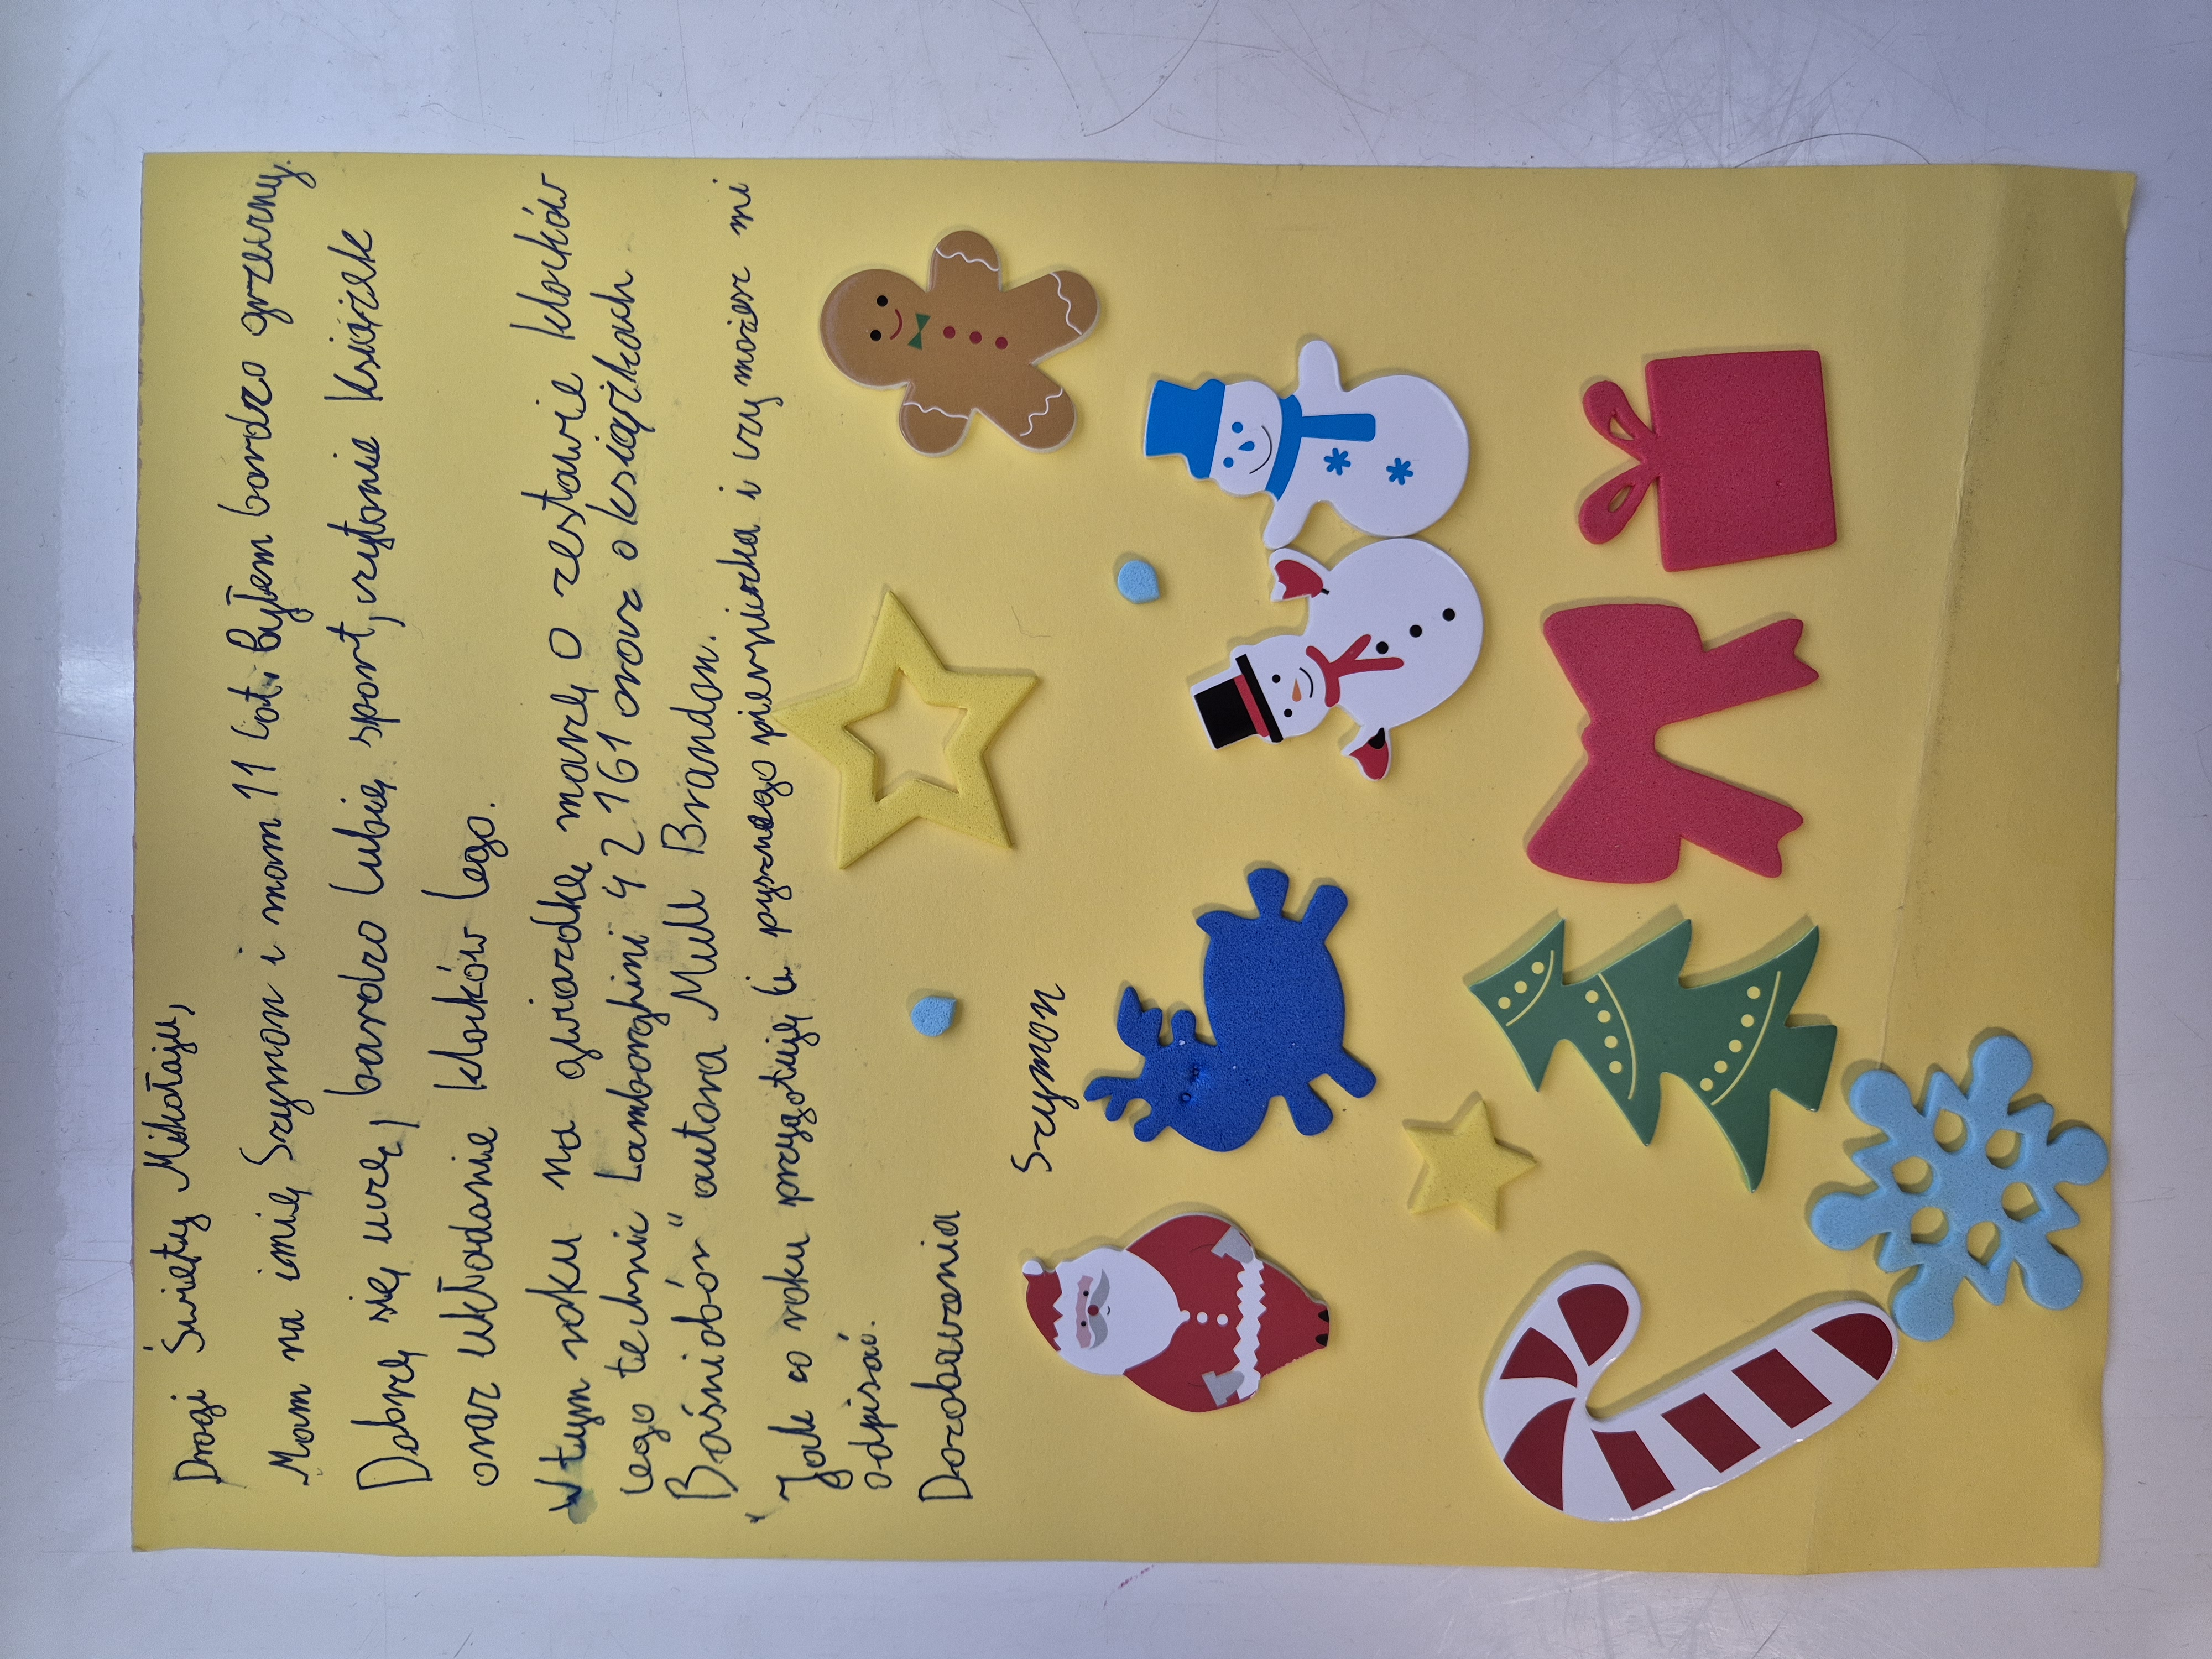 Drogi Święty Mikołaju,
Mam na imię Szymon i mam 11 lat. Byłem bardzo grzeczny.
Dobrze się uczę, bardzo lubię sport, czytanie książek
oraz układanie klocków lego.
W tym roku na gwiazdkę marzę o zestawie klocków
lego technic Lamborghini 42161 oraz o książkach
„Baśniobór" autora Mull Brandon.
Jak co roku przygotuję Ci pysznego pierniczka i czy możesz mi
odpisać.
Dozobaczenia
Szymon